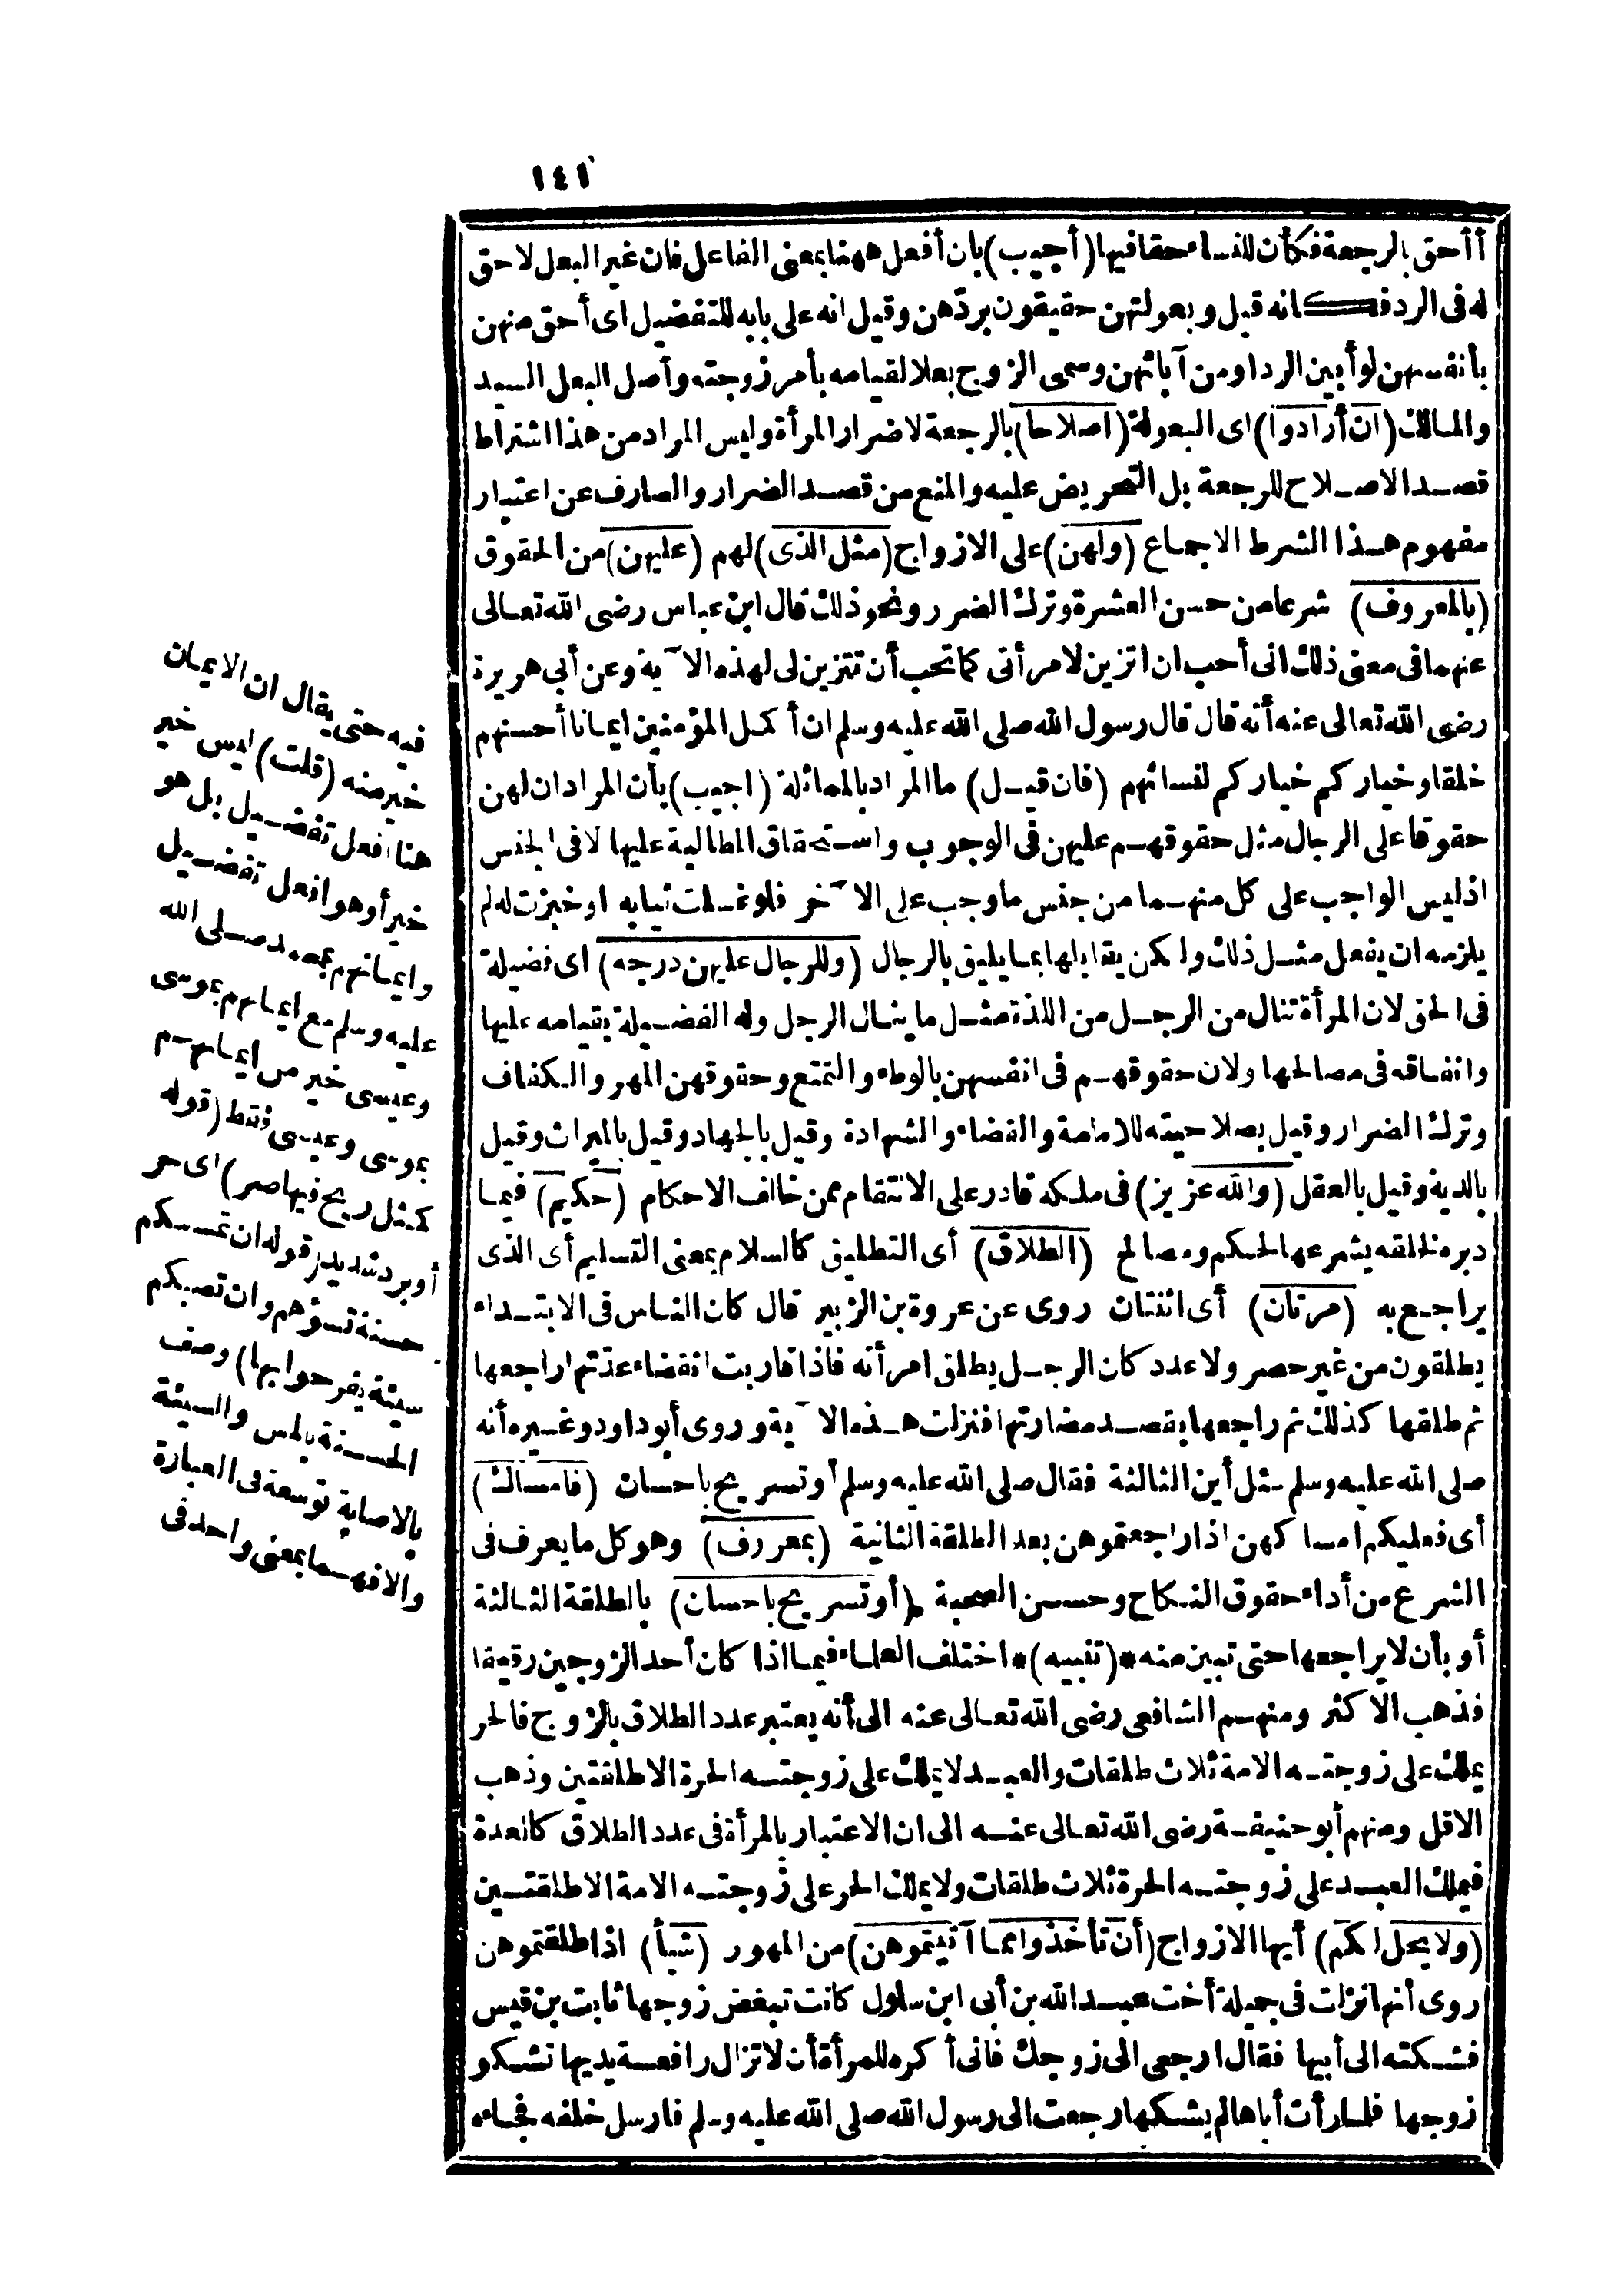 ١٤١
أأحق بالرجعة فكأن للنساء حقا فيها (أجيب) بان أفعل ههنا بمعنى الفاعل فان غير البعل لا حق
له فى الرد فكانه قيل وبعولتهن حقيقون بردّهن وقيل انه على بابه للتفضيل اى أحق منهن
بأنفسهن لو أبين الرد او من آبائهن وسمى الزوج بعلا لقيامه بأمر زوجته وأصل البعل السيد
والمالك (ان أرادوا) اى البعولة (اصلاحا) بالرجعة لا ضرار المرأة وليس المراد من هذا اشتراط
قصد الاصلاح للرجعة بل التحريض عليه والمنع من قصد الضرار والصارف عن اعتبار
مفهوم هذا الشرط الاجماع (ولهن) على الازواج (مثل الذى) لهم (عليهن) من الحقوق
(بالمعروف) شرعا من حسن العشرة وترك الضرر ونحو ذلك قال ابن عباس رضى الله تعالى
عنهما فى معنى ذلك انى أحب ان اتزين لامرأتى كما تحب أن تتزين لى لهذه الآية وعن أبى هريرة
رضى الله تعالى عنه أنه قال قال رسول الله صلى الله عليه وسلم ان أكمل المؤمنين ايمانا أحسنهم
خلقا وخياركم خياركم لنسائهم (فان قيل) ما المراد بالمماثلة (اجيب) بأن المراد ان لهن
حقوقا على الرجال مثل حقوقهم عليهن فى الوجوب واستحقاق المطالبة عليها لا فى الجنس
اذ ليس الواجب على كل منهما من جنس ما وجب على الآخر فلو غسلت ثيابه او خبزت له لم
يلزمه ان يفعل مثل ذلك ولكن يقابلها بما يليق بالرجال (وللرجال عليهن درجة) اى فضيلة
فى الحق لان المرأة تنال من الرجل من اللذة مثل ما ينال الرجل وله الفضيلة بقيامه عليها
وانفاقه فى مصالحها ولان حقوقهم فى انفسهن بالوطء والتمتع وحقوقهن المهر والكفاف
وترك الضرار وقيل بصلاحيته للامامة والقضاء والشهادة وقيل بالجهاد وقيل بالميراث وقيل
بالدية وقيل بالعقل (والله عزيز) فى ملكه قادر على الانتقام ممن خالف الاحكام (حكيم) فيما
دبره لخلقه يشرعها لحكم ومصالح (الطلاق) أى التطليق كالسلام بمعنى التسليم أى الذى
يراجع به (مرتان) أى اثنتان روى عن عروة بن الزبير قال كان الناس فى الابتداء
يطلقون من غير حصر ولا عدد كان الرجل يطلق امرأته فاذا قاربت انقضاء عدّتها راجعها
ثم طلقها كذلك ثم راجعها يقصد مضارتها فنزلت هذه الآية وروى أبو داود وغيره أنه
صلى الله عليه وسلم سئل أين الثالثة فقال صلى الله عليه وسلم أو تسريح باحسان (فامساك)
أى فعليكم امساكهن اذا راجعتموهن بعد الطلقة الثانية (بمعروف) وهو كل ما يعرف فى
الشرع من أداء حقوق النكاح وحسن الصحبة (أو تسريح باحسان) بالطلقة الثالثة
أو بأن لا يراجعها حتى تبين منه *(تنبيه)* اختلف العلماء فيما اذا كان أحد الزوجين رقيقا
فذهب الاكثر ومنهم الشافعى رضى الله تعالى عنه الى أنه يعتبر عدد الطلاق بالزوج فالحر
يملك على زوجته الامة ثلاث طلقات والعبد لا يملك على زوجته الحرة الا طلقتين وذهب
الاقل ومنهم أبو حنيفة رضى الله تعالى عنه الى ان الاعتبار بالمرأة فى عدد الطلاق كالعدة
فيملك العبد على زوجته الحرة ثلاث طلقات ولا يملك الحر على زوجته الامة الا طلقتين
(ولا يحل لكم) أيها الازواج (أن تأخذوا مما آتيتموهن) من المهور (شيأ) اذا طلقتموهن
روى أنها نزلت فى جميلة أخت عبد الله بن أبى ابن سلول كانت تبغض زوجها ثابت بن قيس
فشكته الى أبيها فقال ارجعى الى زوجك فانى أكره للمرأة أن لا تزال رافعة يديها تشكو
زوجها فلما رأت أباها لم يشكها رجعت الى رسول الله صلى الله عليه وسلم فارسل خلفه فجاءه
فيه حتى يقال ان الايمان
خير منه (قلت) ليس خير
هنا افعل تفضيل بل هو
خير أو هو افعل تفضيل
وايمانهم بمحمد صلى الله
عليه وسلم مع ايمانهم بموسى
وعيسى خير من ايمانهم
بموسى وعيسى فقط (قوله
كمثل ريح فيها صر) اى حر
أو برد شديد (قوله ان تمسسكم
حسنة تسؤهم وان تصبكم
سيئة يفرحوا بها) وصف
الحسنة بالمس والسيئة
بالاصابة توسعة فى العبارة
والافهما بمعنى واحد فى